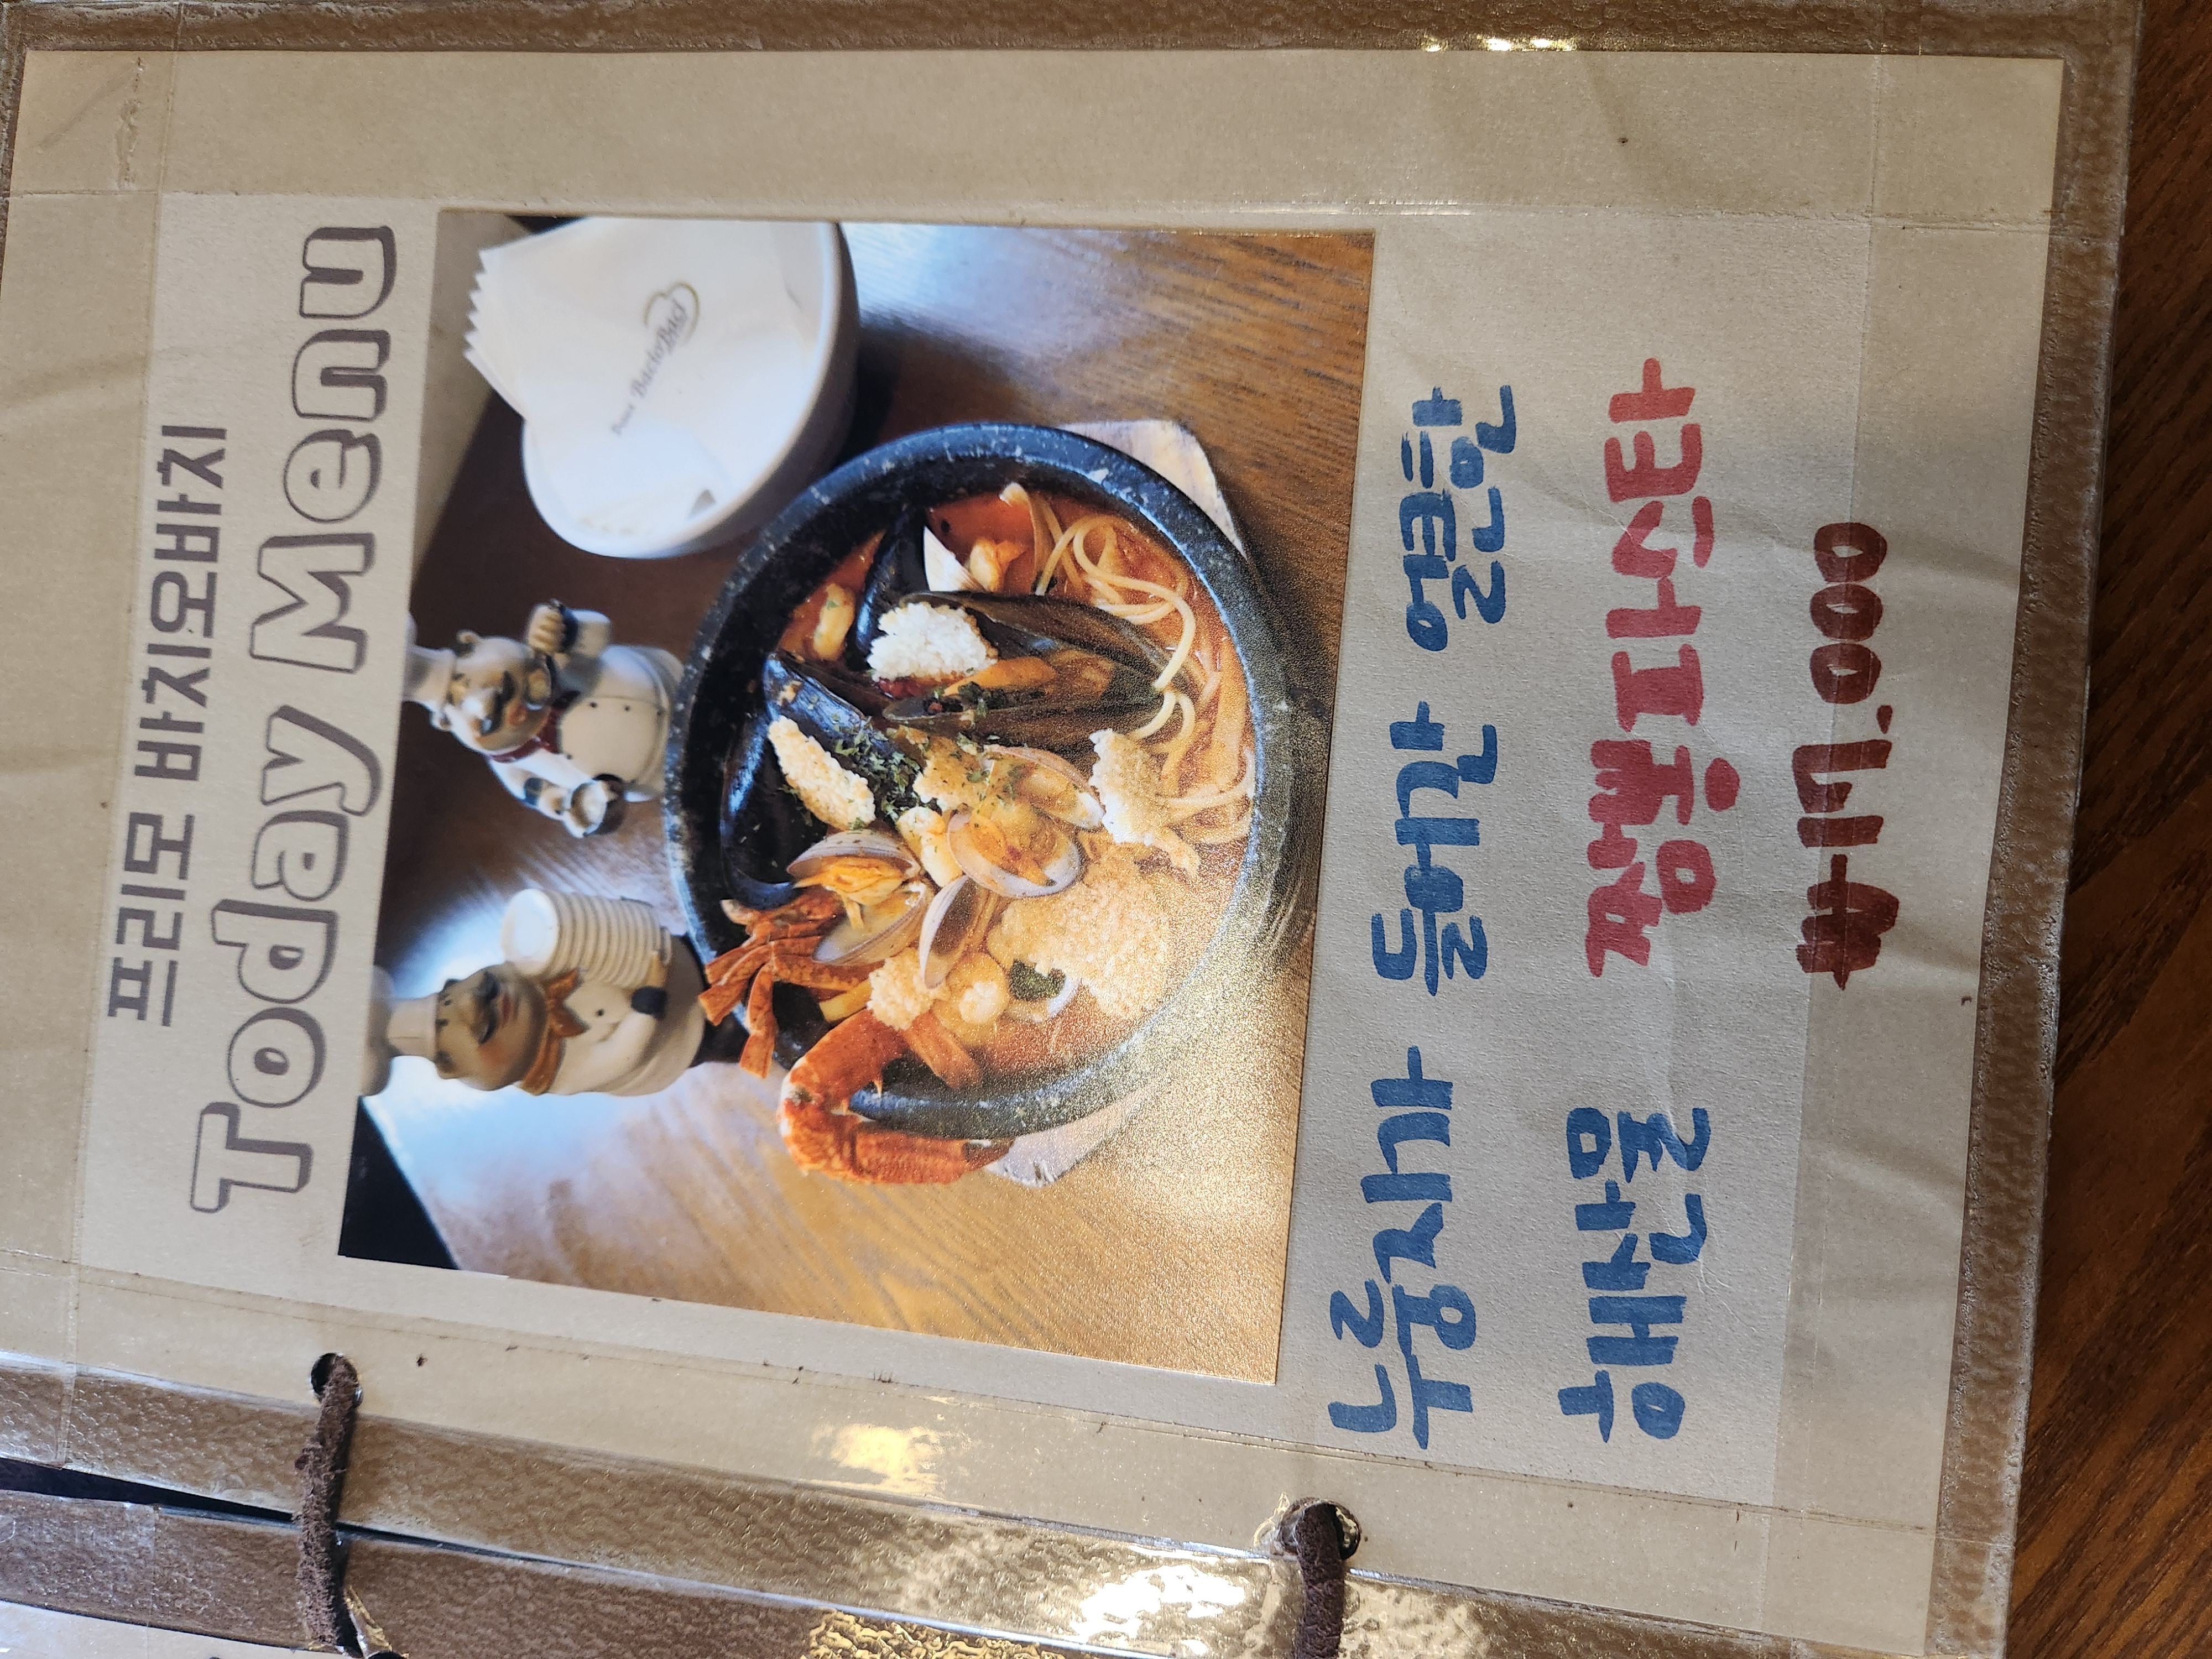 프리모 바치오바치
Today Menu
BacioBaci
누룽지가 들어간 얼큰한
해산물 짬뽕파스타
₩17.000